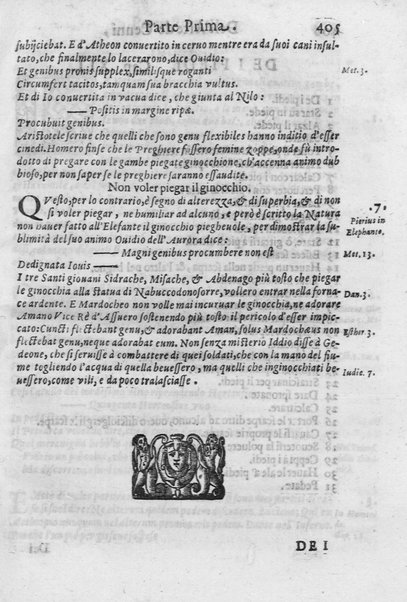 Parte Prima. 405
subijciebat. E d'Atheon conuertito in ceruo mentre era da suoi cani insul-
tato, che finalmente lo lacerarono, dice Ouidio:
Et genibus pronis supplex, similisque roganti Met. 3.
Circumfert tacitos, tamquam sua bracchia vultus.
Et di Io conuertita in vacca dice, che giunta al Nilo:
—— Positis in margine ripæ.
Procubuit genibus.
Aristotele scriue che quelli che sono genu flexibiles hanno inditio d'esser
cinedi. Homero finse che le Preghiere fussero femine zoppe, onde fù intro-
dotto di pregare con le gambe piegate ginocchione, ch'accenna animo dub
bioso, per non saper se le preghiere saranno essaudite.
Non voler piegar il ginocchio.
QVesto, per lo contrario, è segno di alterezza, & di superbia, & di non .7.
si voler piegar, ne humiliar ad alcuno, e però è scritto la Natura Pierius in
non hauer fatto all'Elefante il ginocchio pieghеuole, per dimostrar la su- Elephante.
blimità del suo animo Ouidio dell'Aurora dice:
—— Magni genibus procumbere non est Met. 13.
Dedignata Iouis ——
I tre Santi giouani Sidrache, Misache, & Abdenago più tosto che piegar
le ginocchia alla statua di Nabuccodonosorre, voliero entrar nella forna- Dan. 3.
ce ardente. E Mardocheo non volse mai incuruar le ginocchia, ne adorare
Amano Vice Rè d'Assuero sostenendo più tosto il pericolo d'esser impic-
cato: Cuncti flectebant genu, & adorabant Aman, solus Mardochæus non Esther 3.
flectebat genu, neque adorabat eum. Non senza misterio Iddio disse à Ge-
deone, che si seruisse à combattere di quei soldati, che con la mano del fiu-
me togliendo l'acqua di quella beuessero, ma quelli che inginocchiati be Iudic. 7.
uessero, come vili, e da poco tralasciasse.
DE I